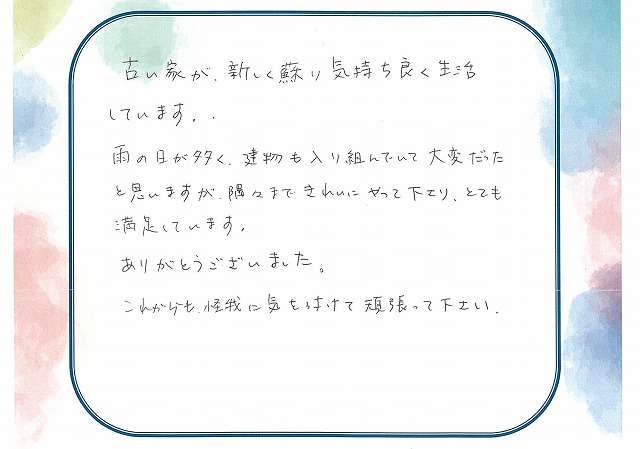 古い家が、新しく蘇り気持ち良く生活
しています。
雨の日が多く、建物も入り組んでいて大変だった
と思いますが、隅々まできれいにやって下さり、とても
満足しています。
ありがとうございました。
これからも、怪我に気を付けて頑張って下さい。